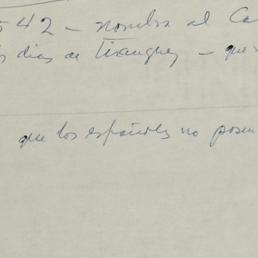 542 - nombra al Ca
dias de tiangues - que
que los españoles no posean